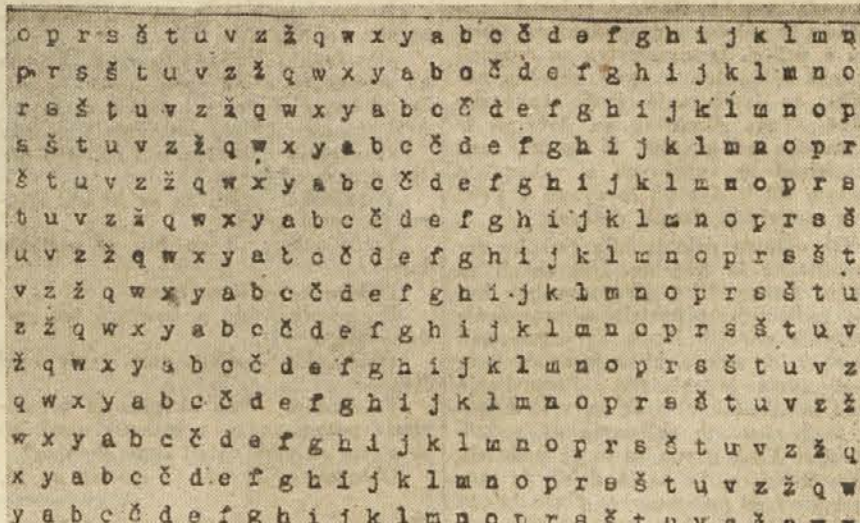 o p r s š t u v z ž q w x y a b c č d e f g h i j k l m n
p r s š t u v z ž q w x y a b c č d e f g h i j k l m n o
r s š t u v z ž q w x y a b c č d e f g h i j k l m n o p
s š t u v z ž q w x y a b c č d e f g h i j k l m n o p r
š t u v z ž q w x y a b c č d e f g h i j k l m n o p r s
t u v z ž q w x y a b c č d e f g h i j k l m n o p r s š
u v z ž q w x y a b c č d e f g h i j k l m n o p r s š t
v z ž q w x y a b c č d e f g h i j k l m n o p r s š t u
z ž q w x y a b c č d e f g h i j k l m n o p r s š t u v
ž q w x y a b c č d e f g h i j k l m n o p r s š t u v z
q w x y a b c č d e f g h i j k l m n o p r s š t u v z ž
w x y a b c č d e f g h i j k l m n o p r s š t u v z ž q
x y a b c č d e f g h i j k l m n o p r s š t u v z ž q w
y a b c č d e f g h i j k l m n o p r s š t u v z ž q w x